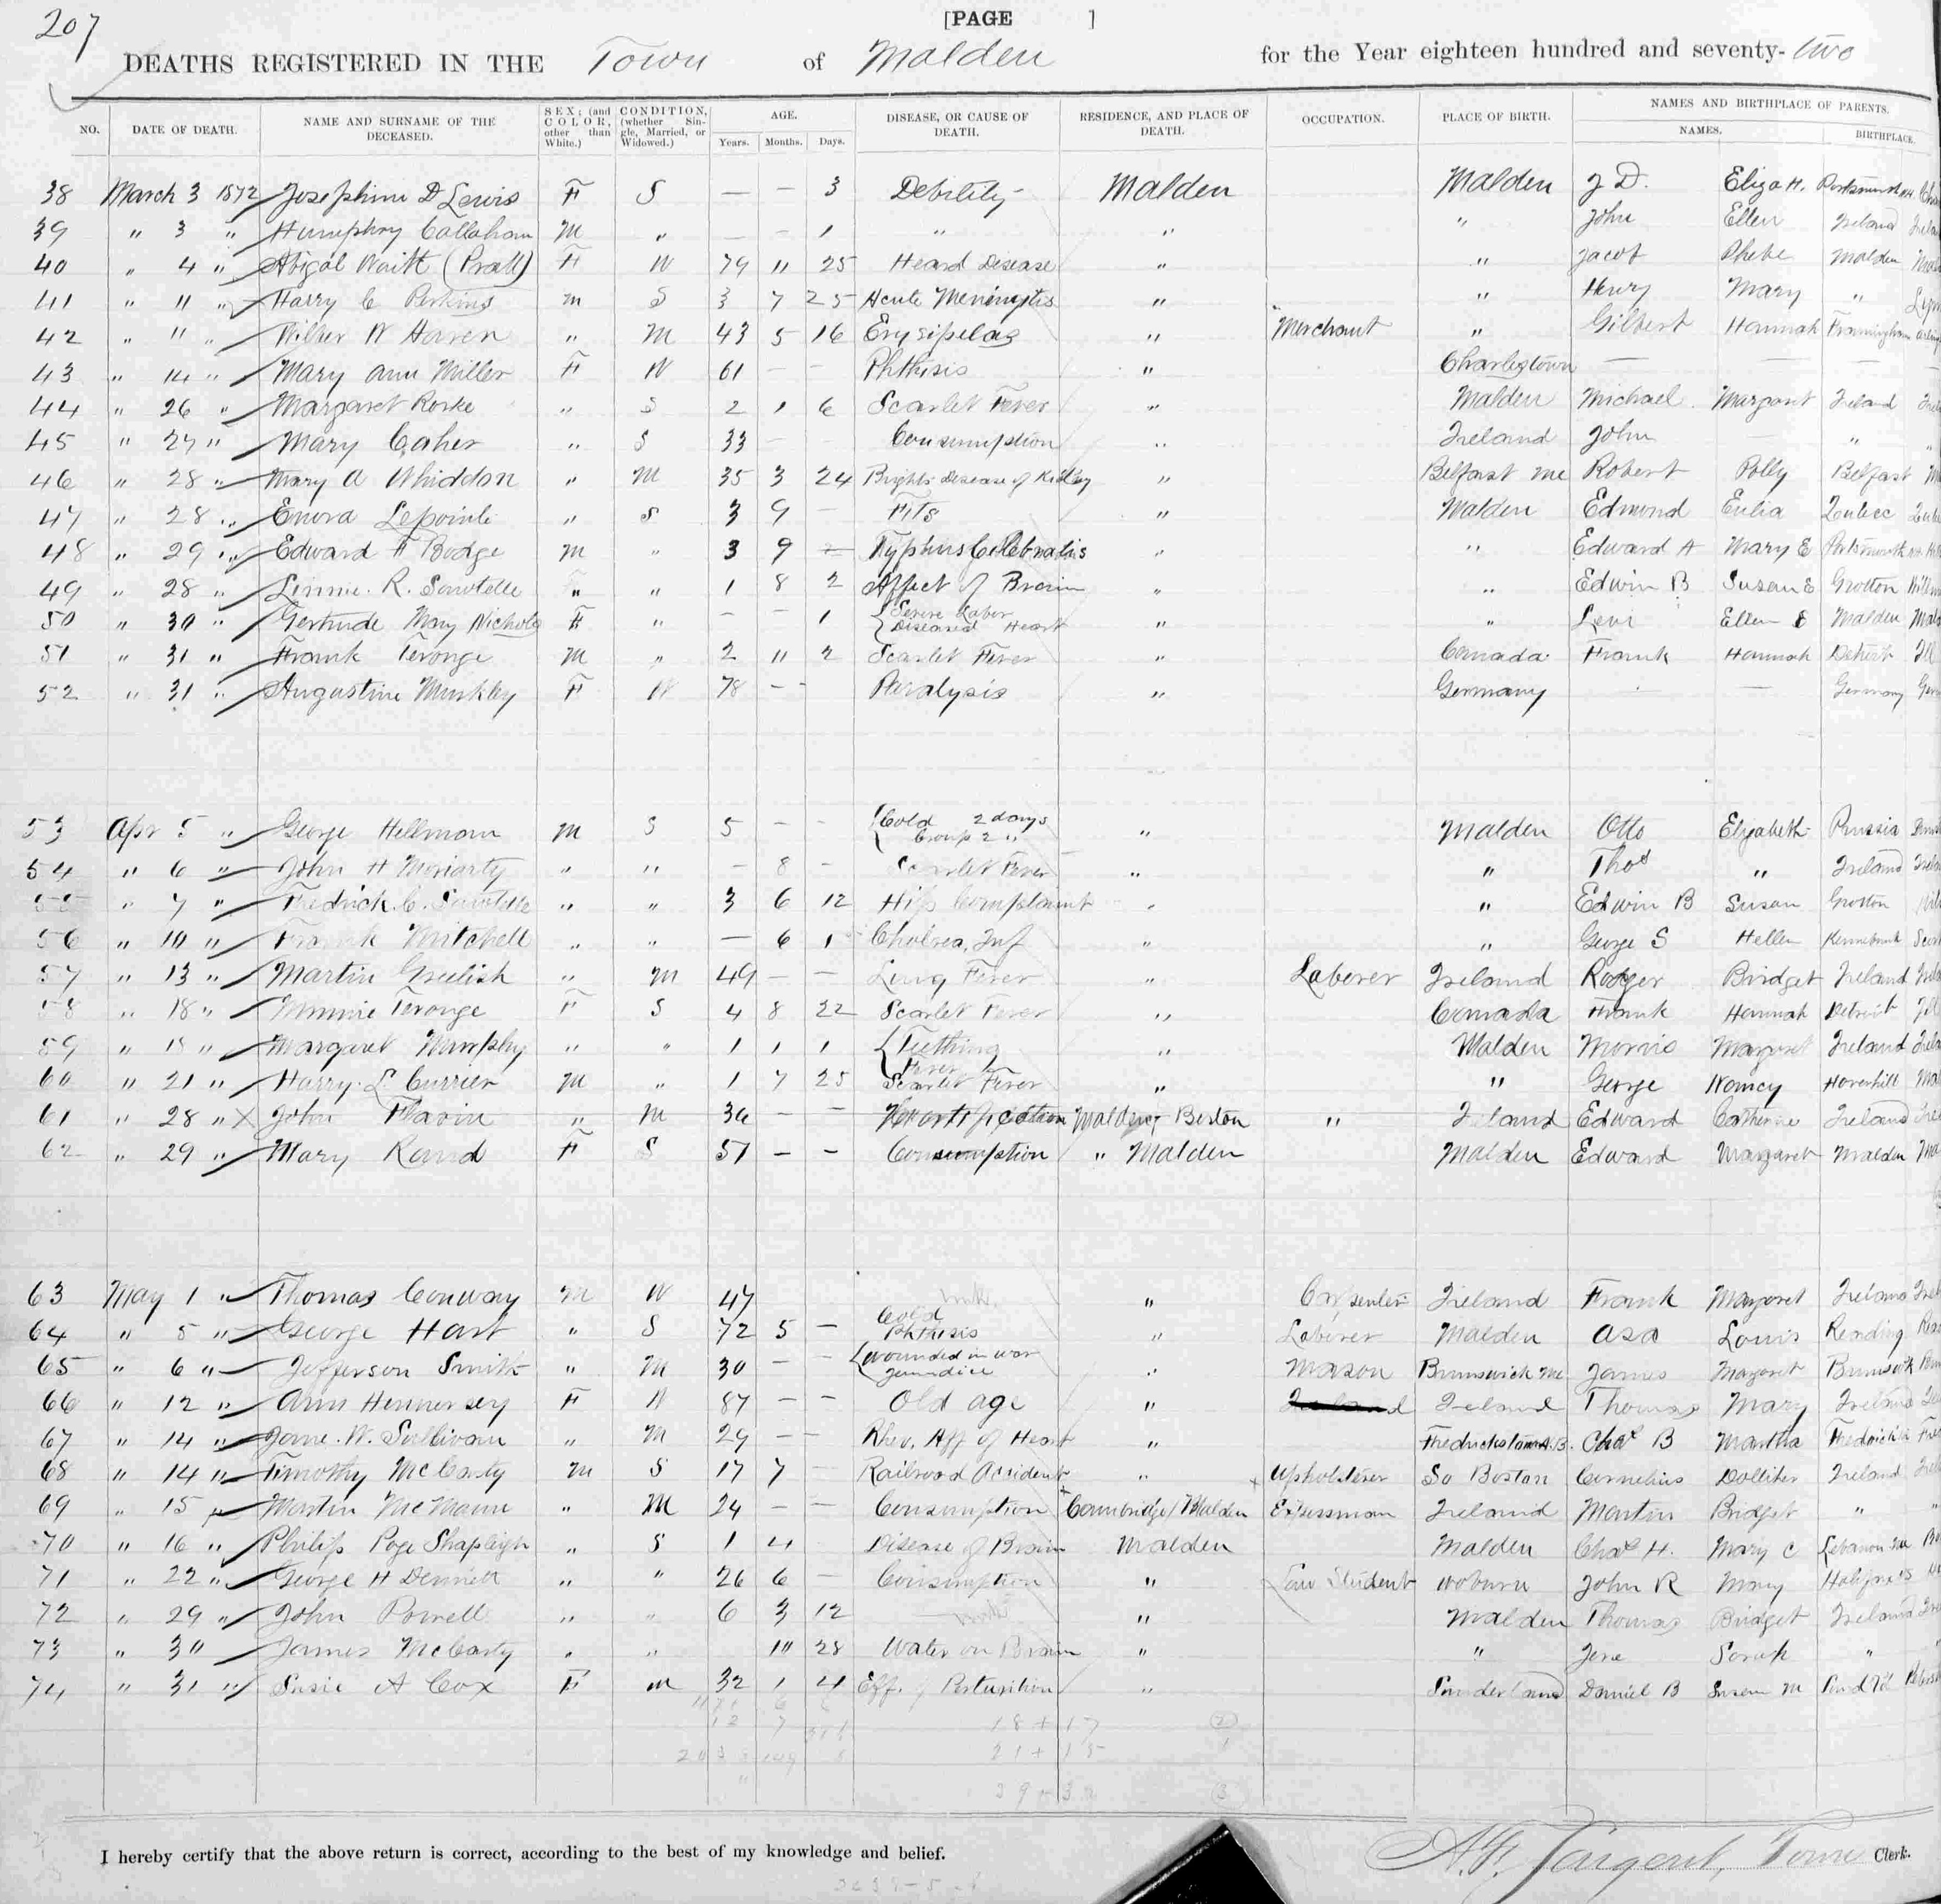 207
[PAGE ]
DEATHS REGISTERED IN THE Town of Malden for the Year eighteen hundred and seventy-two
NO. DATE OF DEATH. NAME AND SURNAME OF THE DECEASED. SEX; (and COLOR, other than White.) CONDITION, (whether Single, Married, or Widowed.) AGE. Years. Months. Days. DISEASE, OR CAUSE OF DEATH. RESIDENCE, AND PLACE OF DEATH. OCCUPATION. PLACE OF BIRTH. NAMES AND BIRTHPLACE OF PARENTS. NAMES. BIRTHPLACE.
38 March 3 1872 Josephine D Lewis F S — — 3 Debility Malden Malden J D. Eliza H.
39 " 3 " Humphry Callaham M " — — 1 " " " John Ellen Ireland
40 " 4 " Abigal Waitt (Pratt) F W 79 11 25 Heard Disease " " Jacob Phebe Malden
41 " 11 " Harry C Perkins M S 3 7 25 Acute " " Henry Mary "
42 " 11 " Wilber W Haven " M 43 5 16 Erysipelas " Merchant " Gilbert Hannah Framingham
43 " 14 " Mary Ann Miller F W 61 — — Phthisis " Charlestown — — —
44 " 26 " Margaret Rorke " S 2 1 6 Scarlet Fever " Malden Michael Margaret Ireland
45 " 27 " Mary Caher " S 33 — Consumption " Ireland John — "
46 " 28 " Mary A Whiddon " M 35 3 24 Brights Disease of Kidley " Belfast Me Robert Polly Belfast
47 " 28 " Enora Lepointe " S 3 9 — Fits " Malden Edmond Eulia
48 " 29 " Edward A Bodge M " 3 9 — Typhus " " Edward A Mary E Portsmouth
49 " 28 " Linnie. R. Sawtelle " " 1 8 2 Affect of Brain " " Edwin B Susan E Grotton
50 " 30 " Gertrude Mary Nichols F " — — 1 Severe Labor Diseased Heart " " Levi Ellen E Malden
51 " 31 " Frank Feronge M " 2 11 2 Scarlet Fever " Canada Frank Hannah
52 " 31 " Augustine F W 78 — — Paralysis " Germany — Germany
53 Apr 5 " George Hellmam M S 5 — — Cold 2 days Croup 2 " " Malden Otto Elizabeth Prussia
54 " 6 " John H Moriarty " " — 8 — Scarlet Fever " " Thos " Ireland
55 " 7 " Fredrick. C. Sawtelle " " 3 6 12 Hip Complaint " " Edwin B Susan Grotton
56 " 10 " Frank Mitchell " " — 6 1 Cholrea, Inf " " George S Hellen
57 " 13 " Martin Greelish " M 49 — — Lung Fever " Laborer Ireland Rodger Bridget Ireland
58 " 18 " Minnie Feronge F S 4 8 22 Scarlet Fever " Canada Frank Hannah Detroit
59 " 18 " Margaret Murphy " " 1 1 1 Teething Fever " Malden Morris Margaret Ireland
60 " 21 " Harry. L Currier M " 1 7 25 Scarlet Fever " " George Nancy Haverhill
61 " 28 " X John Flavin " M 36 — — Malden Boston " Ireland Edward Catherine Ireland
62 " 29 " Mary Rand F S 51 — — Consumption " Malden Malden Edward Margaret Malden
63 May 1 " Thomas Conway M W 47 " Carpenter Ireland Frank Margaret Ireland
64 " 5 " George Hart " S 72 5 — Cold Phthisis " Laborer Malden Asa Louis Reading
65 " 6 " Jefferson Smith " M 30 — — wounded in war " Mason Brunswick Me James Margaret Brunswick
66 " 12 " Ann Hennersey F W 87 — — Old age " Ireland Thomas Mary Ireland
67 " 14 " Jane. W. Sullivan " M 29 — — Rheu. Aff of Heart " Fredrickstown N.B. Chas B Martha
68 " 14 " Timothy McCarty M S 17 7 — Railroad Accident " Upholsterer So Boston Cornelius Ireland
69 " 15 " Martin McMann " M 24 — — Consumption Cambridge / Malden Expressman Ireland Martin Bridget "
70 " 16 " Philip Page Shapleigh " S 1 4 Disease of Brain Malden Malden Chas H. Mary C Lebanon Me
71 " 22 " George H Dennett " " 26 6 — Consumption " Law Student Woburn John R Mary
72 " 29 " John Powell " " 6 3 12 " Malden Thomas Bridget Ireland
73 " 30 James McCarty " " 10 28 Water on Brain " " Jere Sarah "
74 " 31 " Susie A Cox F M 32 1 4 Eff. of Parturition " Sunderland Daniel B Susan M
18 + 17 2
21 + 15 1
39 + 32 3
I hereby certify that the above return is correct, according to the best of my knowledge and belief. A. F. Sargent, Town Clerk.